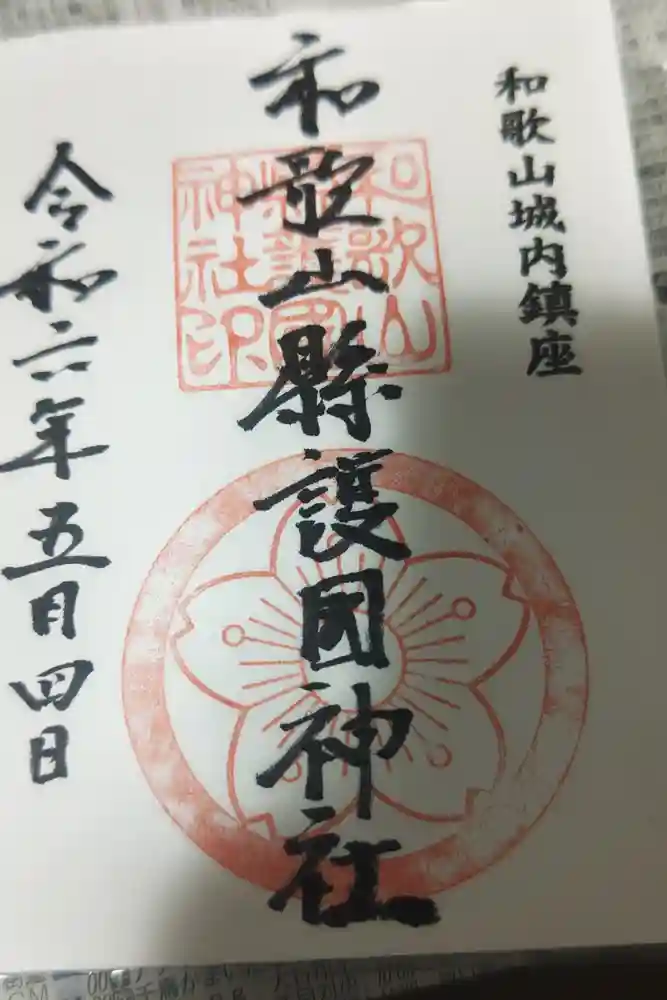 和歌山城内鎮座
和歌山縣護國神社
令和六年五月四日
和歌山
縣護國
神社印